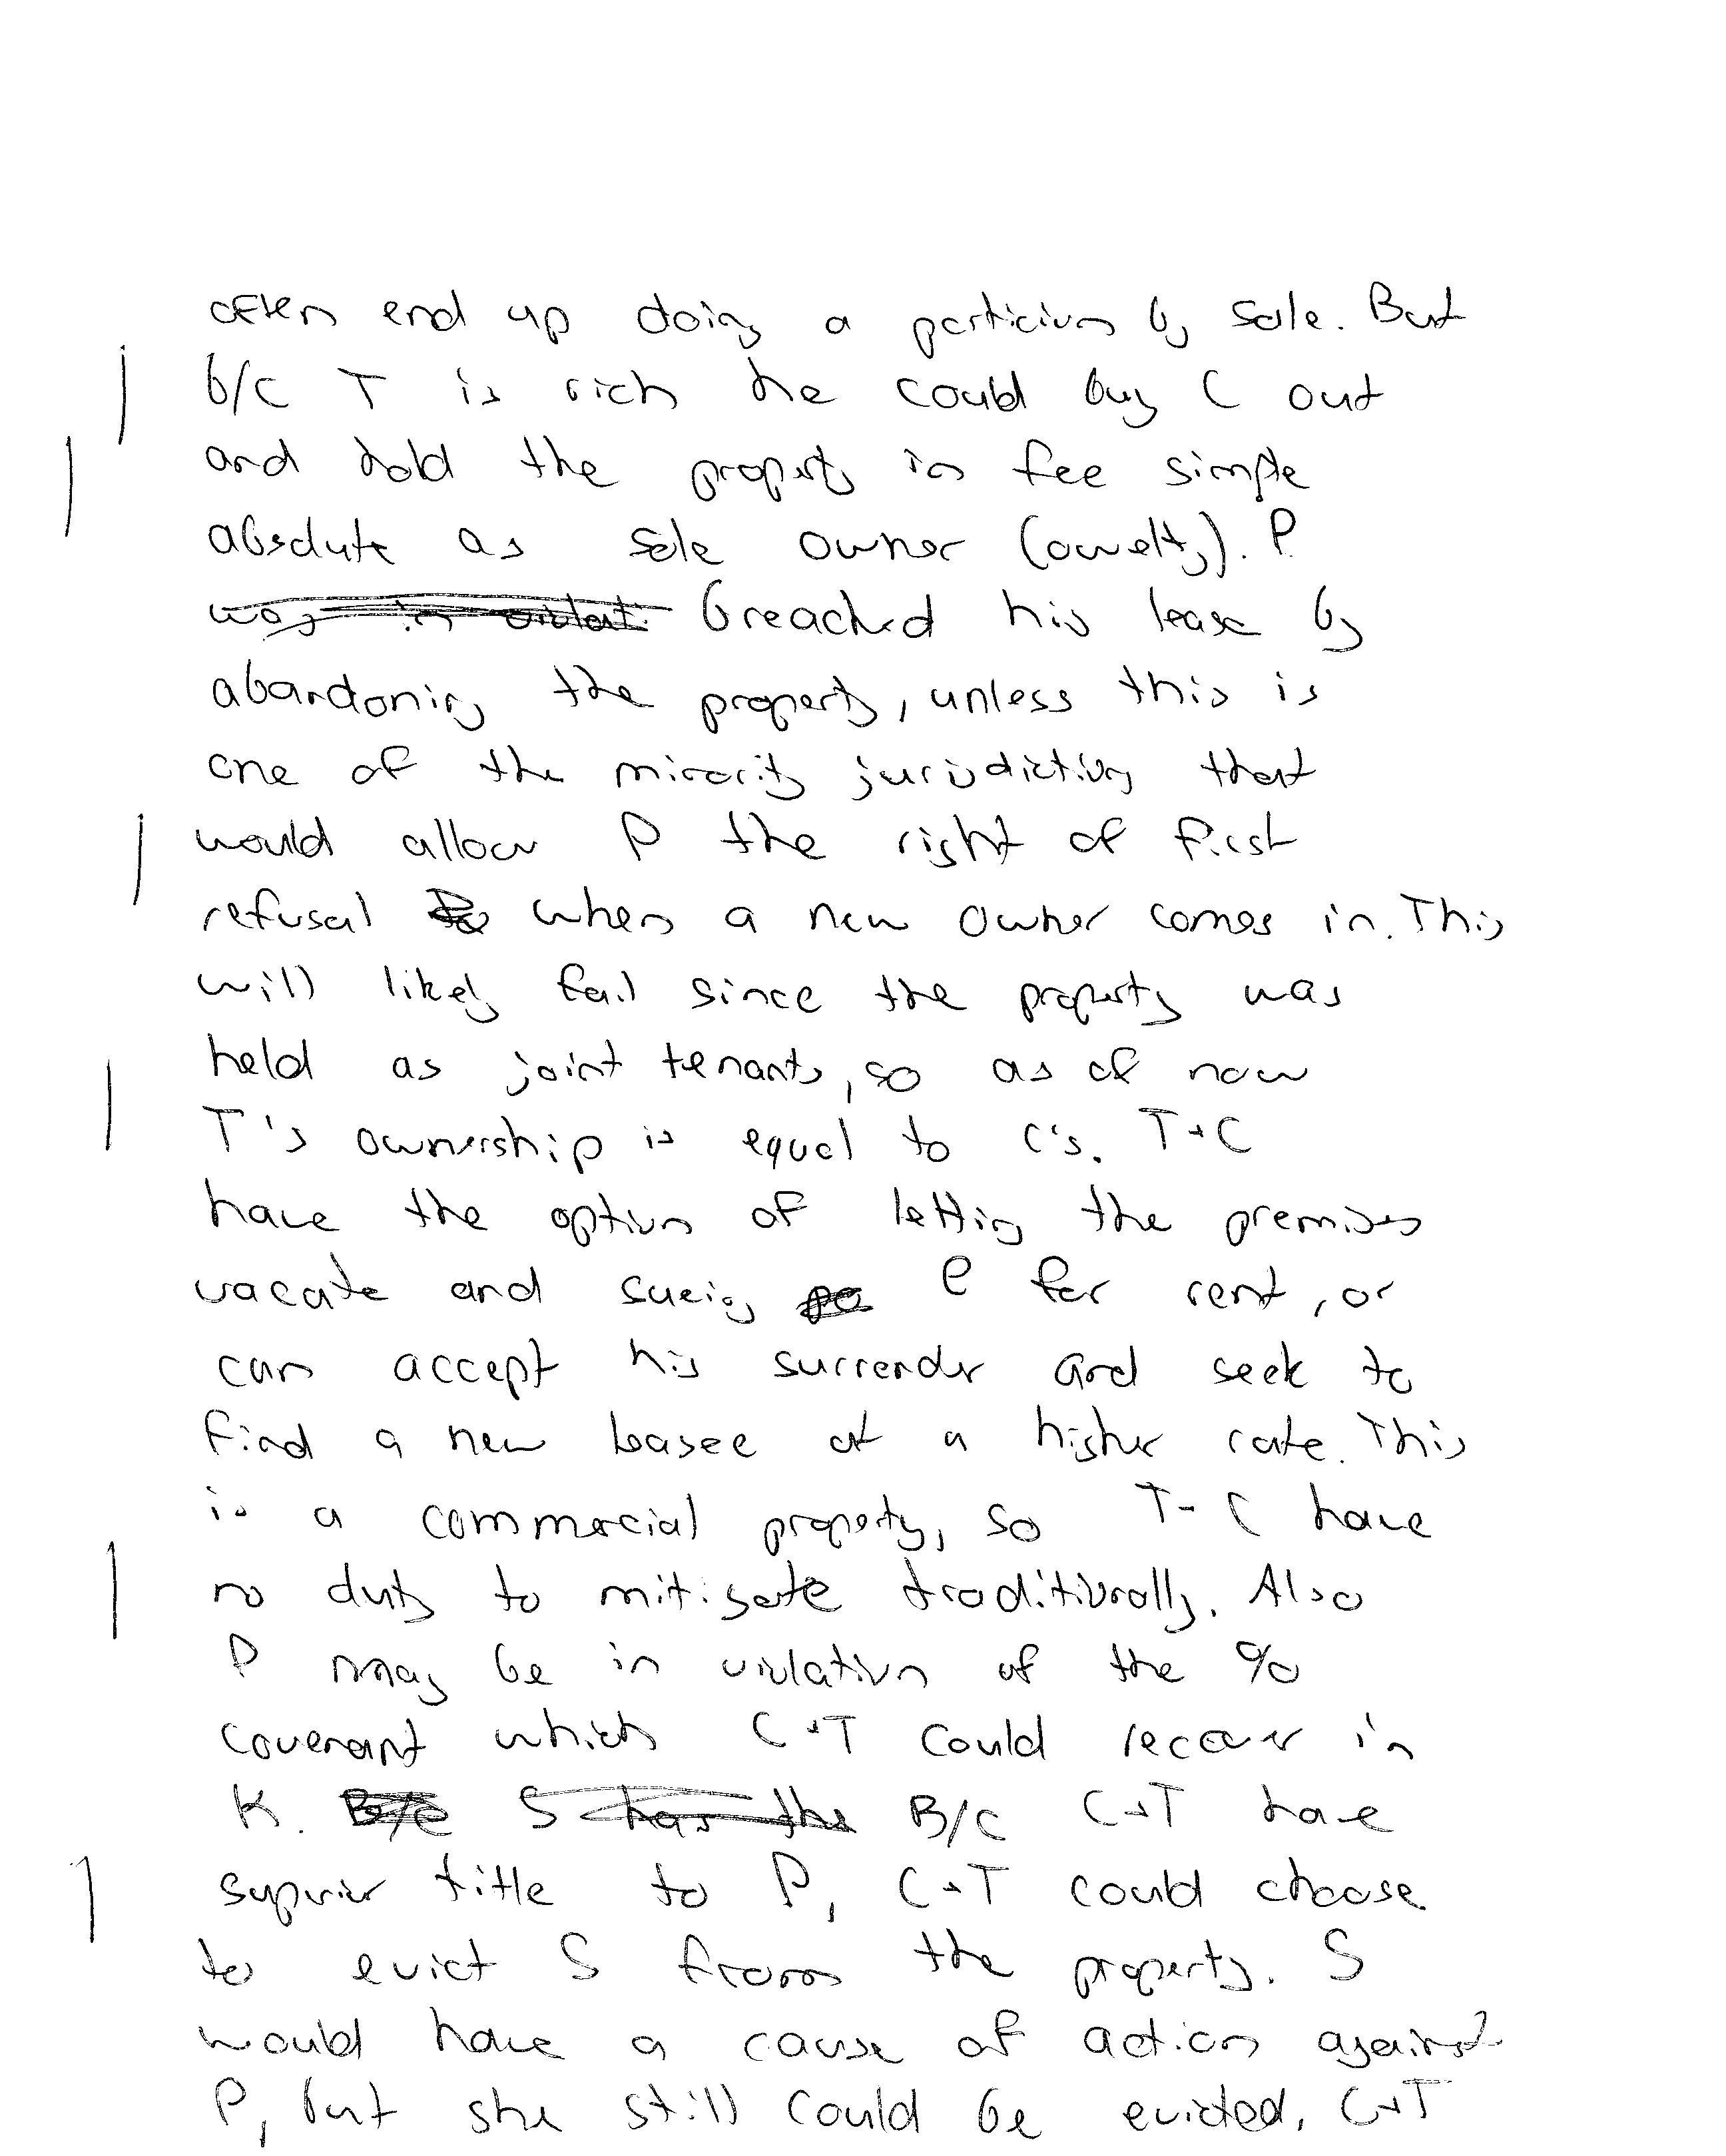 often end up doing a partition by sale. But
b/c T is rich he could buy C out
and hold the property in fee simple
absolute as sole owner (owelty). P
breached his lease by
abandoning the property, unless this is
one of the minority jurisdictions that
would allow P the right of first
refusal when a new owner comes in. This
will likely fail since the property was
held as joint tenants, so as of now
T's ownership is equal to C's. T+C
have the option of letting the premises
vacate and sueing P for rent, or
can accept his surrender and seek to
find a new leasee at a higher rate. This
is a commercial property, so T+C have
no duty to mitigate traditionally. Also
P may be in violation of the %
covenant which C+T could recover in
K. B/C C+T have
superior title to P, C+T could choose
to evict S from the property. S
would have a cause of action against
P, but she still could be evicted. C+T